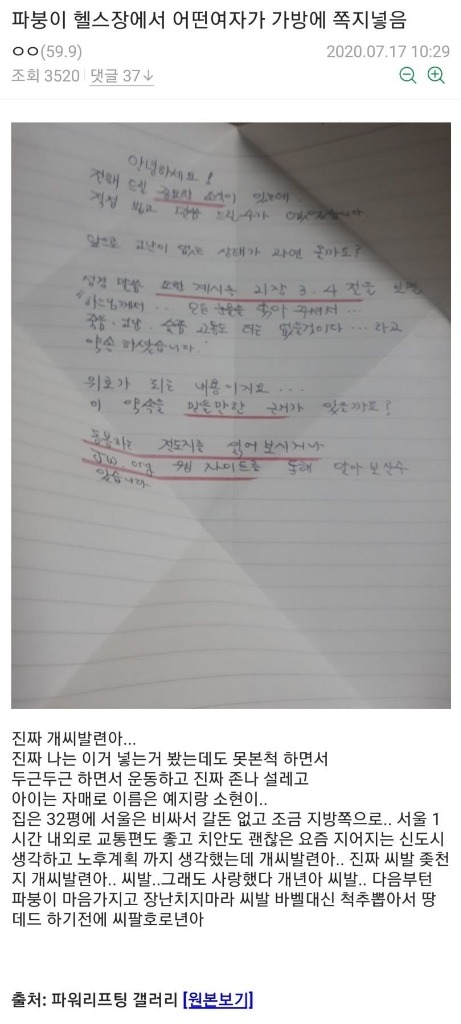 파붕이 헬스장에서 어떤여자가 가방에 쪽지넣음
ㅇㅇ(59.9)
2020.07.17 10:29
조회 3520 댓글 37↓
안녕하세요!
전해 드릴 중요한 소식이 있는데.
직접 뵙고 말씀 드릴 수가 없었습니다.
앞으로 고난이 없는 상태가 과연 올까요?
성경 말씀 요한 계시록 21장 3. 4 절을 보면
"하느님께서 ... 모든 눈물을 닦아 주셔서 ...
죽음, 고난, 슬픔 고통도 더는 없을것이다 ... 라고
약속 하셨습니다.
위로가 되는 내용이지요 ...
이 약속을 믿을만한 근거가 있을까요?
동봉하는 전도지를 읽어 보시거나
jw.org 웹 사이트를 통해 알아 보실수
있습니다
진짜 개씨발련아...
진짜 나는 이거 넣는거 봤는데도 못본척 하면서
두근두근 하면서 운동하고 진짜 존나 설레고
아이는 자매로 이름은 예지랑 소현이..
집은 32평에 서울은 비싸서 갈돈 없고 조금 지방쪽으로.. 서울 1
시간 내외로 교통편도 좋고 치안도 괜찮은 요즘 지어지는 신도시
생각하고 노후계획 까지 생각했는데 개씨발련아.. 진짜 씨발 좆천
지 개씨발련아.. 씨발..그래도 사랑했다 개년아 씨발.. 다음부턴
파붕이 마음가지고 장난치지마라 씨발 바벨대신 척추뽑아서 땅
데드 하기전에 씨팔호로년아
출처: 파워리프팅 갤러리 [원본보기]